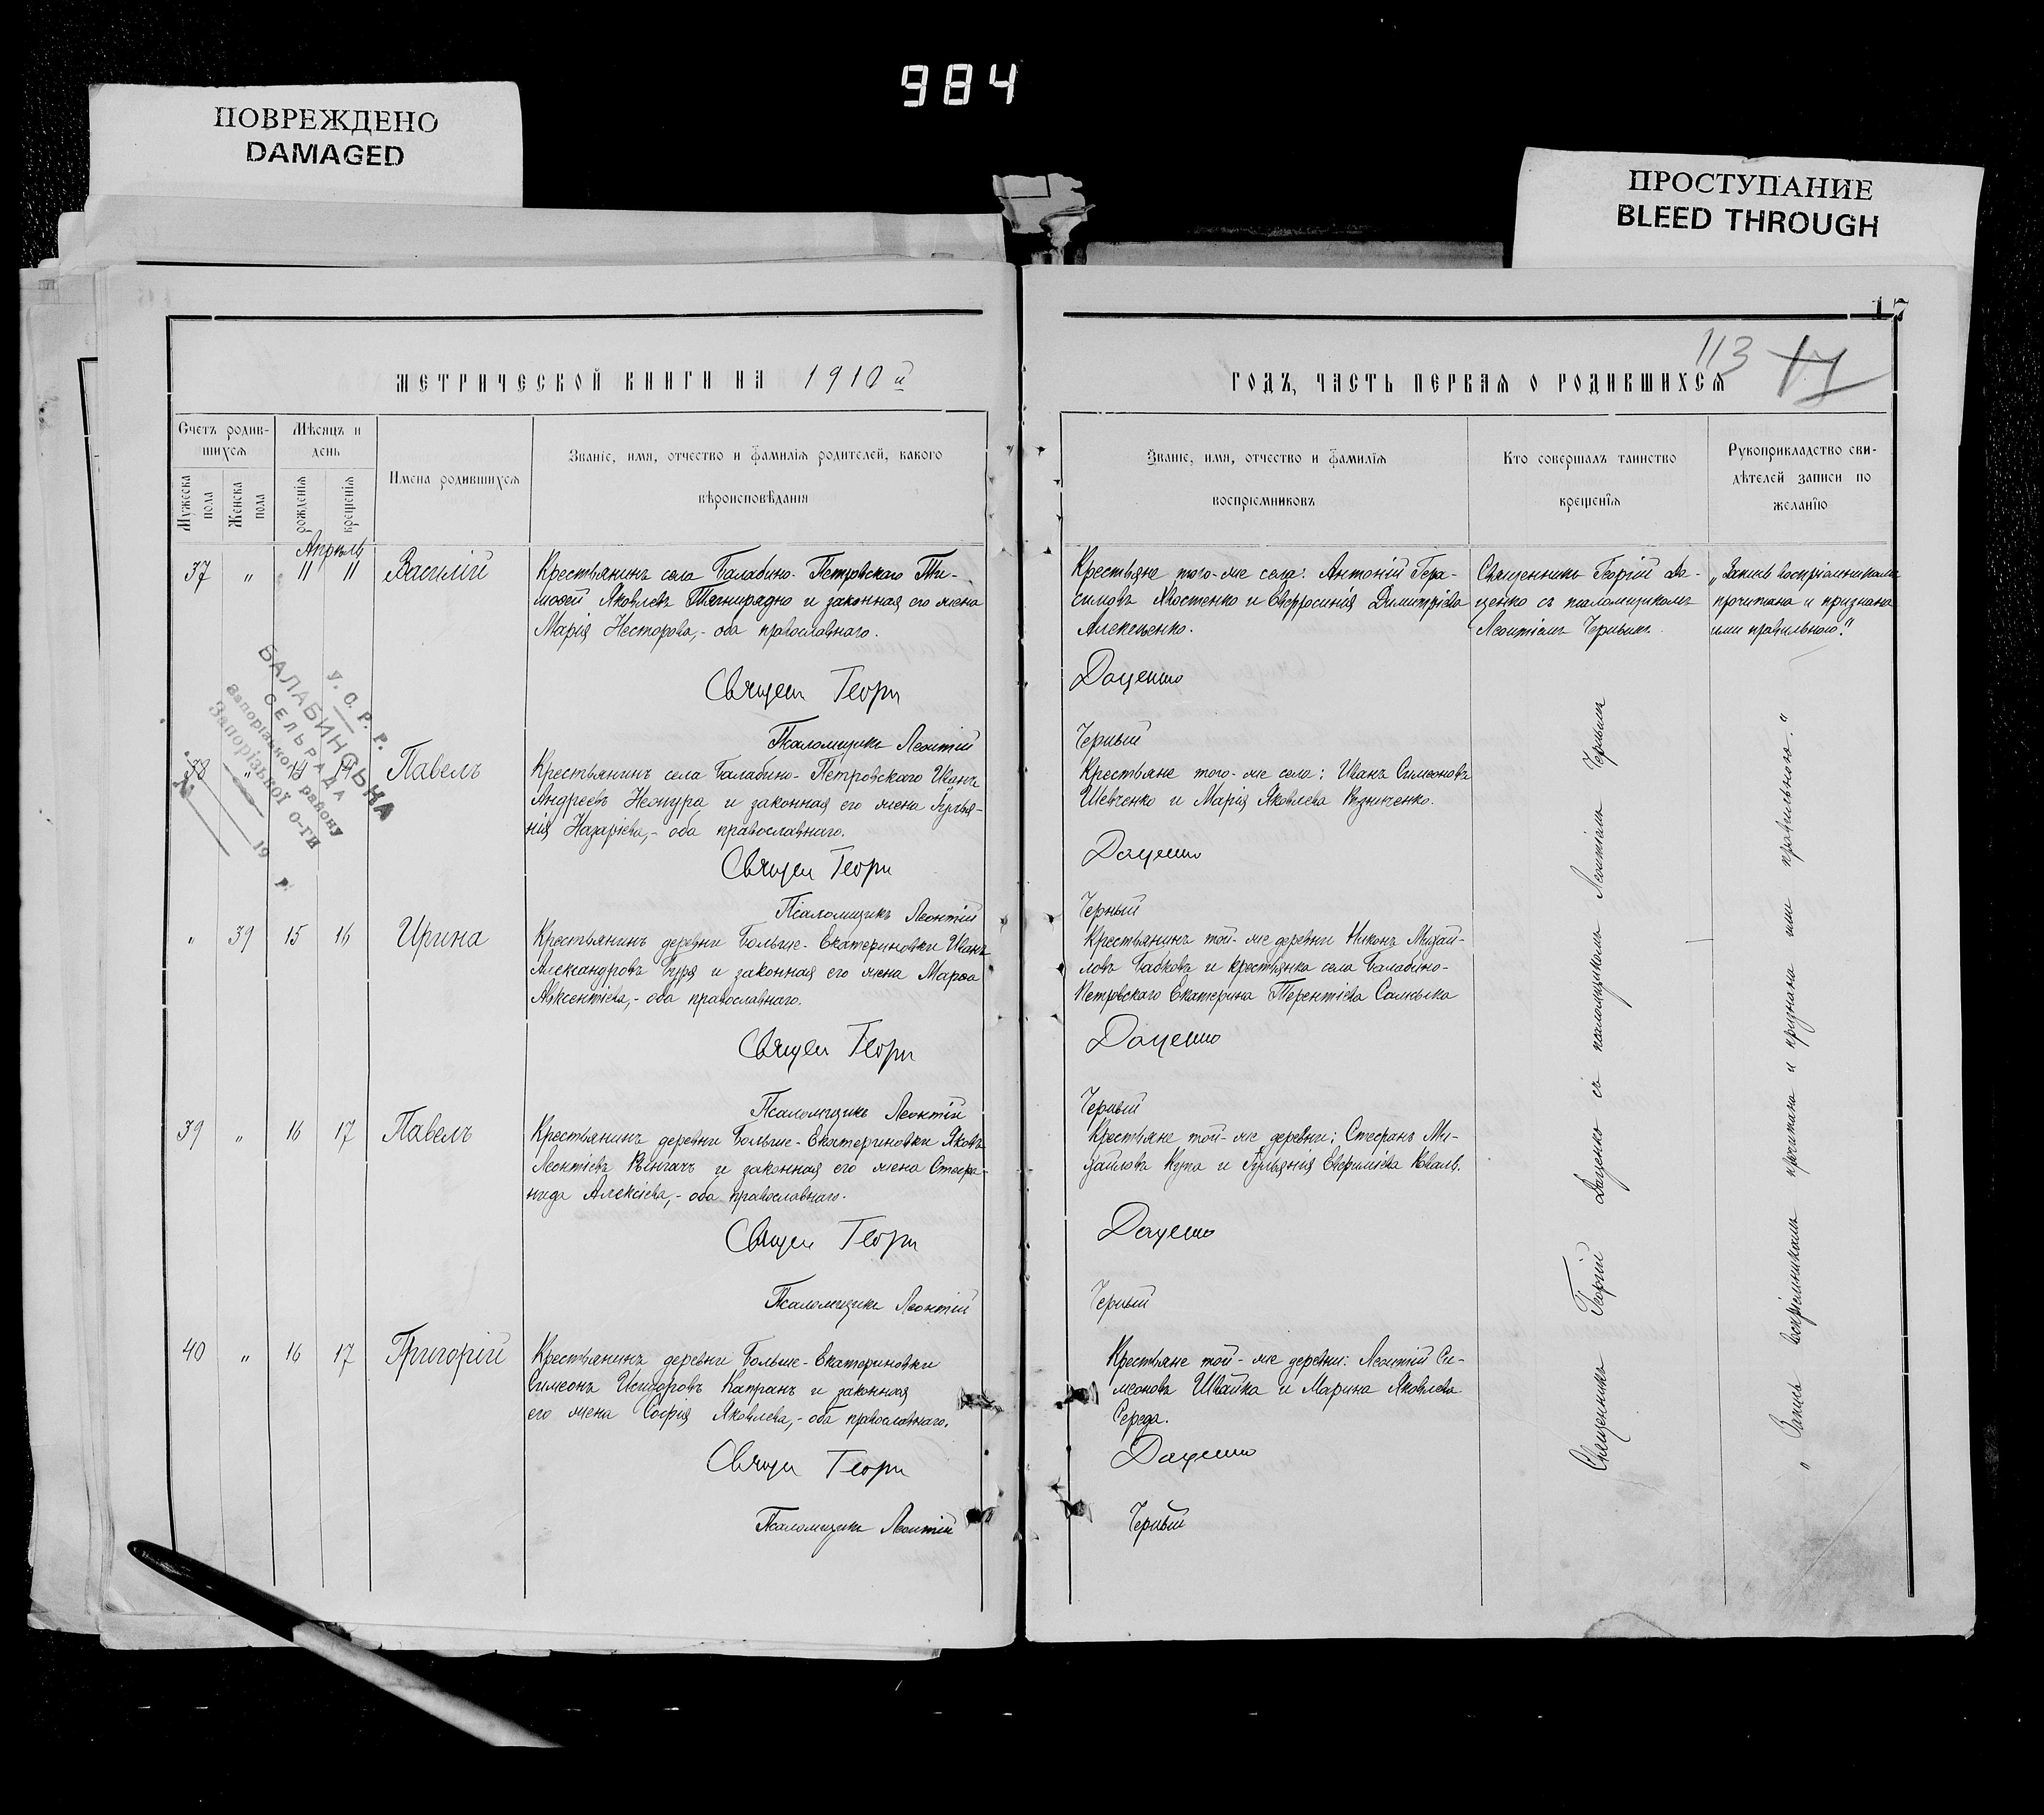 984
ПОВРЕЖДЕНО
DAMAGED
ПРОСТУПАНИЕ
BLEED THROUGH
17
113 17
МЕТРИЧЕСКОЙ КНИГИ НА 1910 й
Счетъ родив-
шихся
Мужеска
пола
Женска
пола
Мѣсяцъ и
день
рожденія
крещенія
Имена родившихся
Званіе, имя, отчество и фамилія родителей, какого
вѣроисповѣданія
ГОДЪ, ЧАСТЬ ПЕРВАЯ О РОДИВШИХСЯ
Званіе, имя, отчество и фамилія
воспріемниковъ
Кто совершалъ таинство
крещенія
Рукоприкладство сви-
дѣтелей записи по
желанію
Апрѣль
37 " 11 11 Василій
Крестьянинъ села Балабино-Петровскаго Ти-
моѳей Яковлевъ и законная его жена
Марія Несторова,- оба православнаго.
Крестьяне того-же села: Антоній Гера-
симовъ Хвостенко и Евфросинія Димитріева
Алексеенко.
Священникъ Георгій Да-
ценко съ псаломщикомъ
Леонтіемъ Чернымъ.
"Запись воспріемниками
прочитана и признана
ими правильною."
Священ Георг Даценко
Псаломщикъ Леонтій Черный
У. С. Р. Р.
БАЛАБИНСЬКА
СЕЛЬРАДА
Запорізького району
Запорізької о-ги
19 р.
№
38 " 14 14 Павелъ
Крестьянинъ села Балабино-Петровскаго Иванъ
Андреевъ и законная его жена Гулья-
нія Назаріева,- оба православнаго.
Крестьяне того-же села: Иванъ Симеоновъ
Шевченко и Марія Яковлева Резниченко.
Священ Георг Даценко
Псаломщикъ Леонтій Черный
" 39 15 16 Ирина
Крестьянинъ деревни Больше-Екатериновки Иванъ
Александровъ Буря и законная его жена Марѳа
Авксентіева,- оба православнаго.
Крестьянинъ той-же деревни Никонъ Михай-
ловъ Бабковъ и крестьянка села Балабино-
Петровскаго Екатерина Терентіева
Священ Георг Даценко
Псаломщикъ Леонтій Черный
39 " 16 17 Павелъ
Крестьянинъ деревни Больше-Екатериновки Яковъ
Леонтіевъ и законная его жена Стефа-
нида Алексіева,- оба православнаго.
Крестьяне той-же деревни: Стефанъ Ми-
хайловъ Купа и Гульянія Евфиміева Коваль.
Священ Георг Даценко
Псаломщикъ Леонтій Черный
40 " 16 17 Григорій
Крестьянинъ деревни Больше-Екатериновки
Симеонъ Исидоровъ Капранъ и законная
его жена Софія Яковлева,- оба православнаго.
Крестьяне той-же деревни: Леонтій Си-
меоновъ Швайка и Марина Яковлева
Середа.
Священ Георг Даценко
Псаломщикъ Леонтій Черный
Священникъ Георгій Даценко съ псаломщикомъ Леонтіемъ Чернымъ
"Запись воспріемниками прочитана и признана ими правильною."